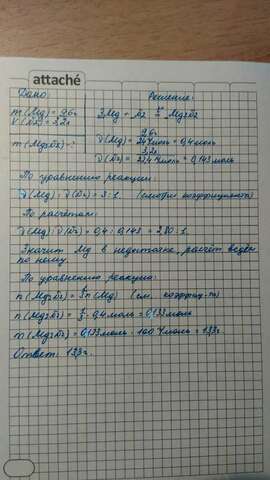 attaché
Дано: Решение:
m(Mg) = 9,6г 3Mg + N2 = Mg3N2
V(N2) = 3,2л 9,6г
ν(Mg) = 24г/моль = 0,4моль
m(Mg3N2) - ? 3,2л
ν(N2) = 22,4л/моль = 0,143моль
По уравнению реакции:
ν(Mg) : ν(N2) = 3 : 1. (смотри коэффициенты)
По расчётам:
ν(Mg) : ν(N2) = 0,4 : 0,143 = 2,80 : 1.
Значит Mg в недостатке, расчёт ведём
по нему.
По уравнению реакции:
n(Mg3N2) = 1/3 n(Mg) (см. коэффиц-ты)
n(Mg3N2) = 1/3 · 0,4моль = 0,133моль
m(Mg3N2) = 0,133моль · 100г/моль = 13,3г.
Ответ: 13,3г.